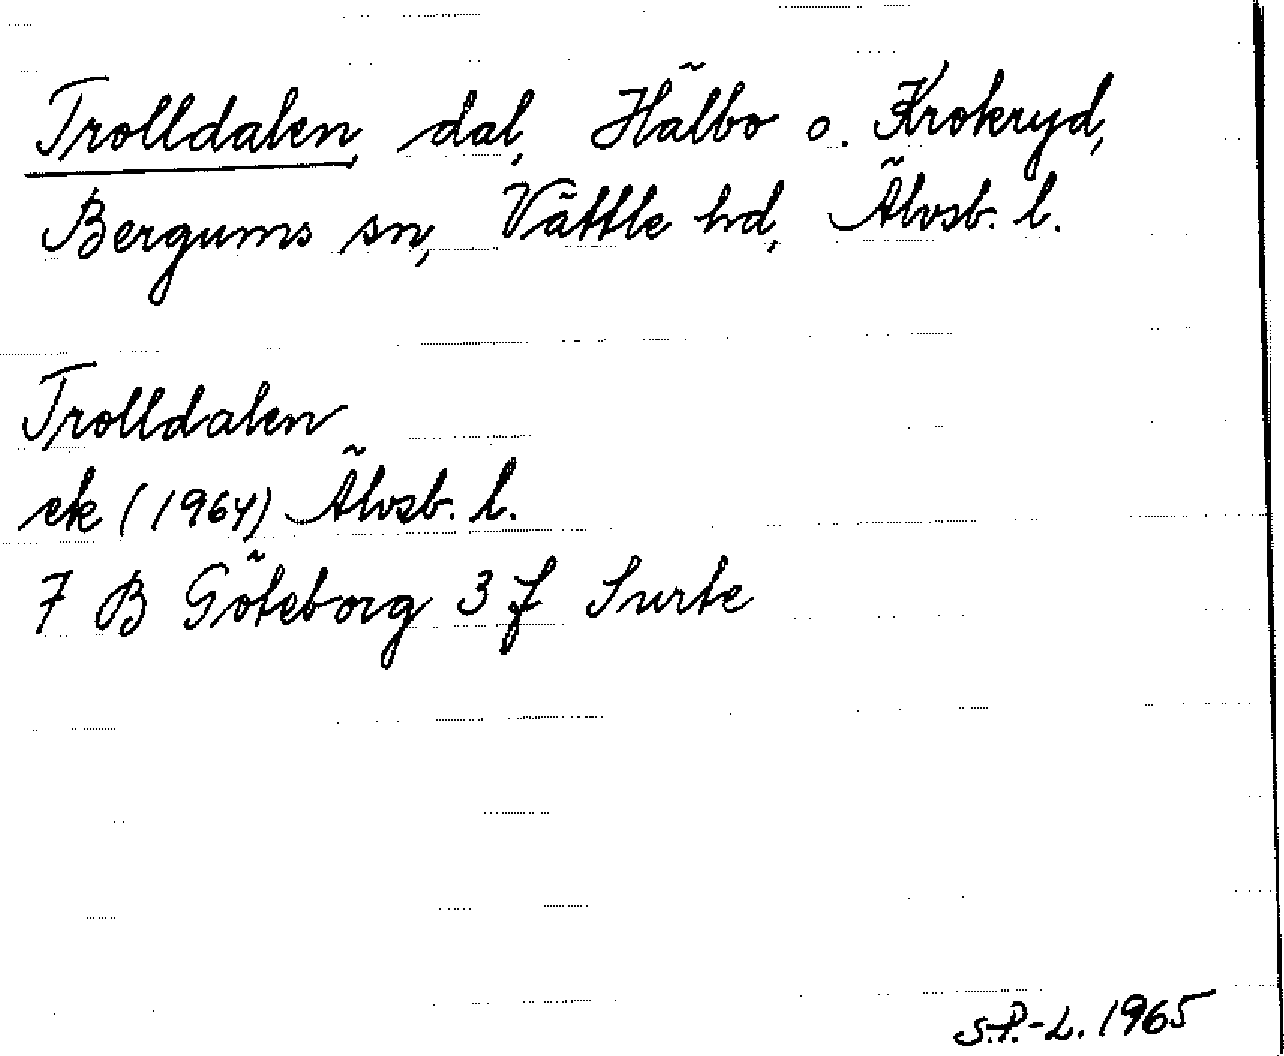 Trolldalen, dal, Hälbo o. Krokryd,
Bergums sn, Vättle hd, Älvsb. l.
Trolldalen
ek (1964) Älvsb. l.
7 B Göteborg 3 f Surte
S.P.-L. 1965